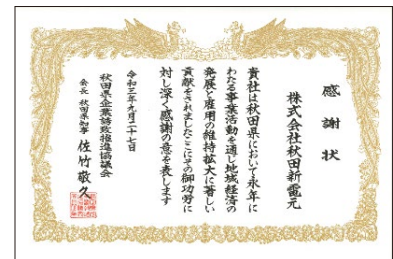 感謝状
株式会社秋田新電元
貴社は秋田県において永年に
わたる事業活動を通じ地域経済の
発展と雇用の維持拡大に著しい
貢献をされましたここにその御功労に
対し深く感謝の意を表します
令和三年九月二十七日
秋田県企業誘致推進協議会
会長 秋田県知事 佐竹敬久